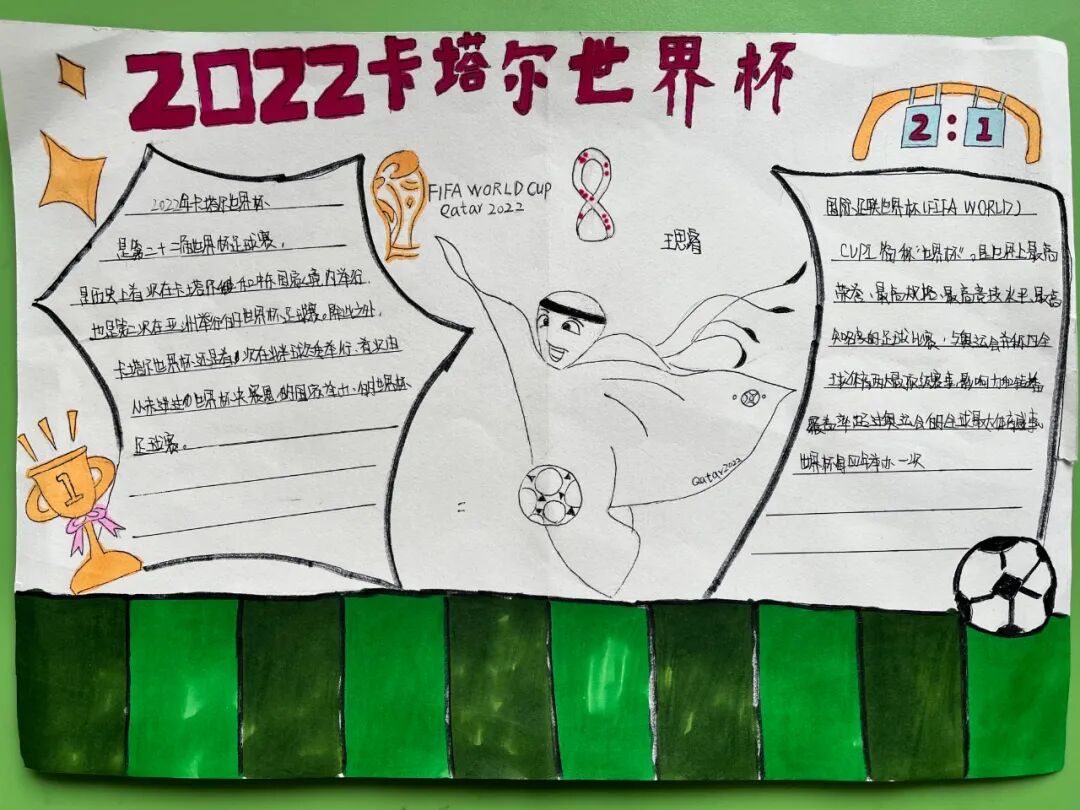 2022卡塔尔世界杯
2:1
FIFA WORLD CUP
Qatar 2022
王思睿
2022年卡塔尔世界杯
是第二十二届世界杯足球赛。
是历史上首次在卡塔尔和中东国家境内举行
也是第二次在亚洲举行的世界杯足球赛。除此之外,
卡塔尔世界杯还是首次在北半球冬季举行、首次由
从未进过世界杯决赛圈的国家举办的世界杯
足球赛。
1
Qatar2022
国际足联世界杯(FIFA WORLD)
CUP)简称"世界杯",是世界上最高
荣誉、最高规格、最高竞技水平、最高
知名度的足球比赛,与奥运会并称为全
球体育两大最顶级赛事,影响力和转播
覆盖率超过奥运会的全球最大体育盛事。
世界杯每四年举办一次